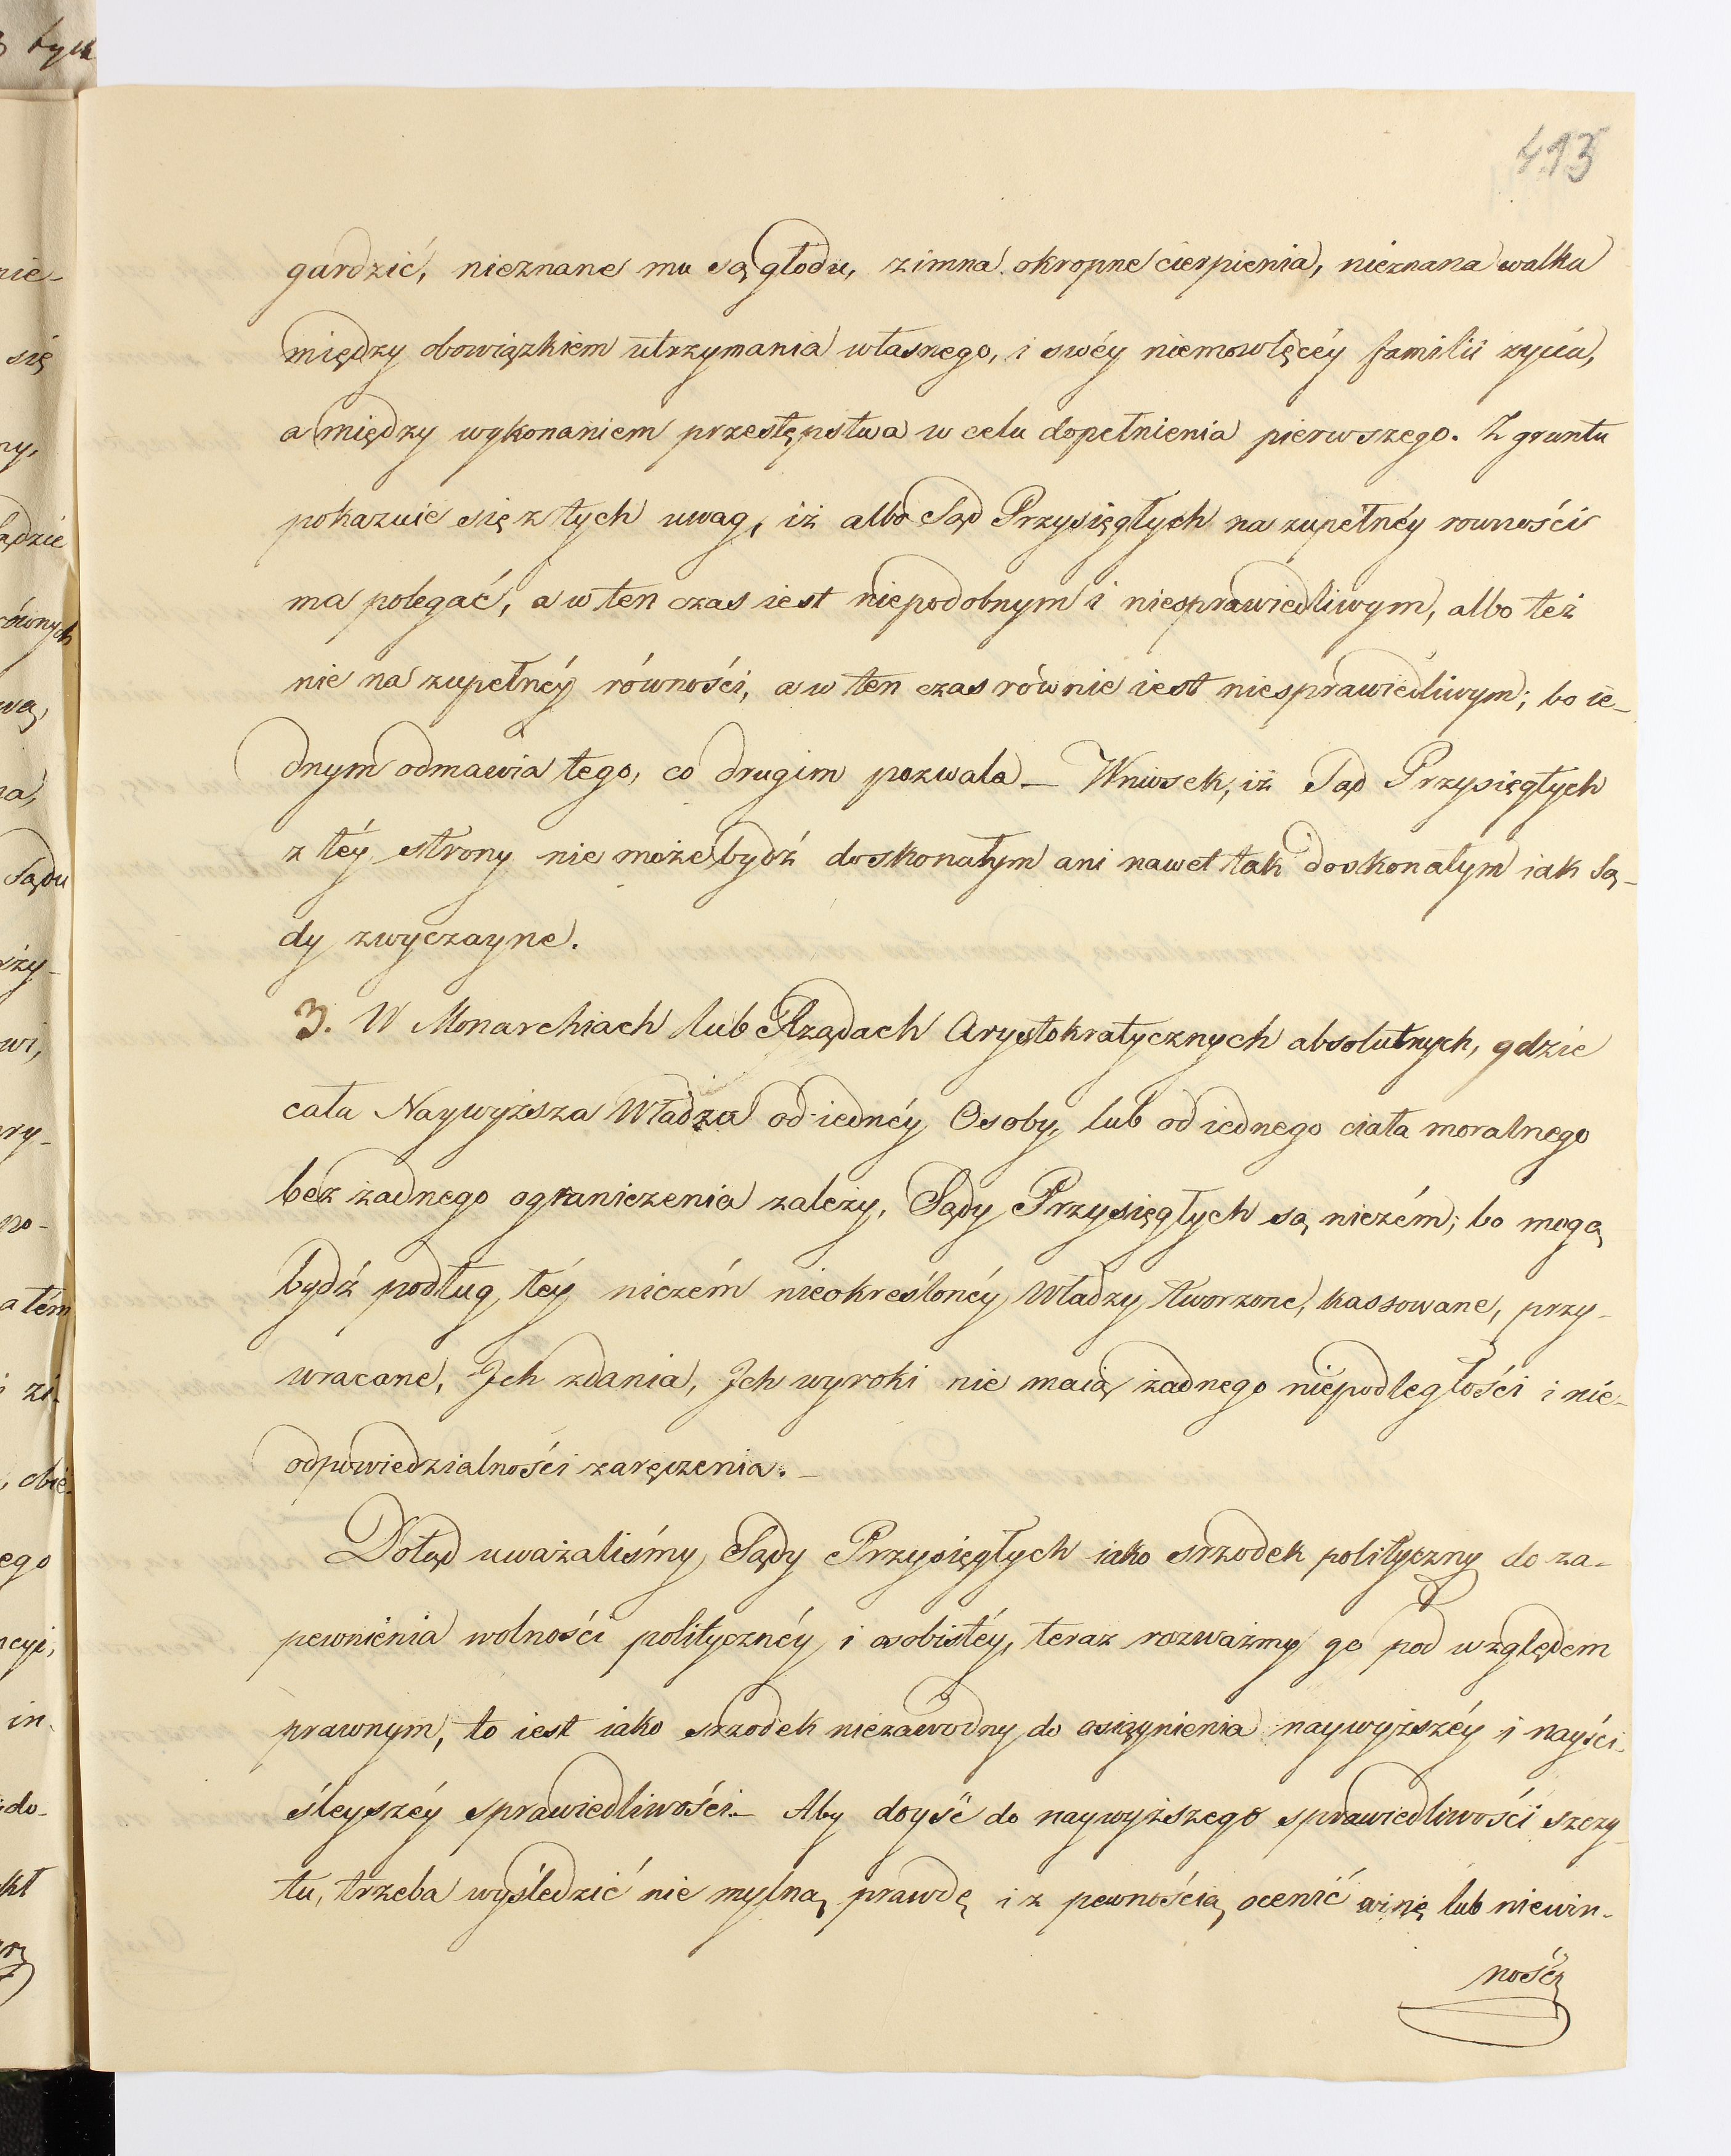 413
gardzić, nieznane mu są głodu, zimna okropne cierpienia, nieznana walka
między obowiązkiem utrzymania własnego, i swéy niemowlęcéy familii życia,
a między wykonaniem przestępstwa w celu dopełnienia pierwszego. Z gruntu
pokazuie się z tych uwag, iż albo Sąd Przysięgłych na zupełnéy rowności
ma polegać, a w ten czas iest niepodobnym i niesprawiedliwym, albo też
nie na zupełnéy równości, a w ten czas równie iest niesprawiedliwym; bo ie-
dnym odmawia tego, co drugim pozwala – Wniosek, iż Sąd Przysięgłych
z téy strony nie może bydź doskonałym ani nawet tak doskonałym iak Są-
dy zwyczayne.
3. W Monarchiach lub Rządach Arystokratycznych absolutnych, gdzie
cała Naywyższa Władza od iednéy Osoby, lub od iednego ciała moralnego
bez żadnego ograniczenia zależy, Sądy Przysięgłych są niczém; bo mogą
bydź podług téy niczém nieokreślonéy Władzy tworzone, kassowane, przy-
wracane, Ich zdania, Ich wyroki nie maią żadnego niepodległości i nie-
odpowiedzialności zaręczenia. –
Dotąd uważaliśmy Sądy Przysięgłych iako srzodek polityczny do za-
pewnienia wolności politycznéy i osobistéy, teraz rozważmy go pod względem
prawnym, to iest iako srzodek niezawodny do osiągnienia naywyższéy i nayści-
śleyszéy sprawiedliwości. – Aby doyść do naywyższego sprawiedliwości szczy-
tu, trzeba wyśledzić nie mylną prawdę i z pewnością ocenić winę lub niewin-
ność
tych
nie-
się
ny,
ądzie
równych
wą,
na,
Sądu
rży-
wi,
ry-
po-
a tém
i zi-
, obie-
ego
ncyi,
in-
ido-
kt